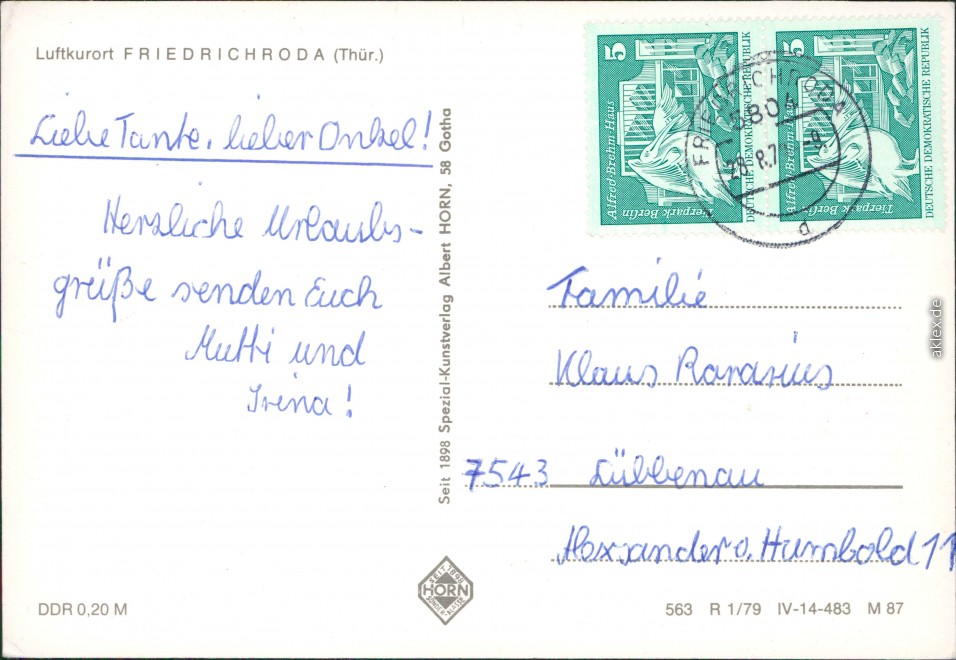 Luftkurort FRIEDRICHRODA (Thür.)
Liebe Tante, lieber Onkel!
Herzliche Urlaubs-
grüße senden Euch
Mutti und
Irina!
DDR 0,20 M
Seit 1898 Spezial-Kunstverlag Albert HORN, 58 Gotha
SEIT 1898
HORN
5
Alfred-Brehm-Haus
Tierpark Berlin
DEUTSCHE DEMOKRATISCHE REPUBLIK
5
Alfred-Brehm-Haus
Tierpark Berlin
DEUTSCHE DEMOKRATISCHE REPUBLIK
FRIEDRICHRODA
5804
Familie
Klaus
7543 Lübbenau
Alexander v. Humbold 11
563 R 1/79 IV-14-483 M 87
aklex.de